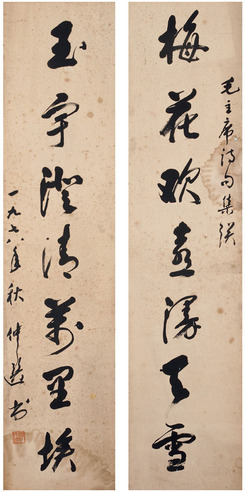 毛主席诗句集联
梅花欢喜漫天雪
玉宇澄清萬里埃
一九七八年秋 仲 书